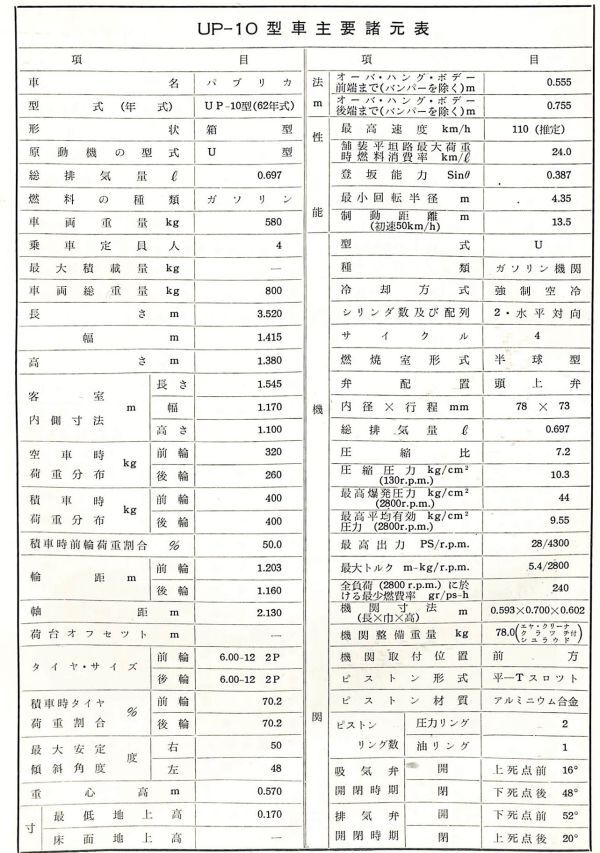 UP-10 型車主要諸元表
項 目
車 名 パブリカ
型 式 (年 式) UP-10型(62年式)
形 状 箱 型
原動機の型式 U 型
総排気量 ℓ 0.697
燃料の種類 ガソリン
車両重量 kg 580
乗車定員人 4
最大積載量 kg —
車両総重量 kg 800
長 さ m 3.520
幅 m 1.415
高 さ m 1.380
客室内側寸法 m 長さ 1.545
幅 1.170
高さ 1.100
空車時荷重分布 kg 前輪 320
後輪 260
積車時荷重分布 kg 前輪 400
後輪 400
積車時前輪荷重割合 % 50.0
輪 距 m 前輪 1.203
後輪 1.160
軸 距 m 2.130
荷台オフセット m —
タイヤ・サイズ 前輪 6.00-12 2P
後輪 6.00-12 2P
積車時タイヤ荷重割合 % 前輪 70.2
後輪 70.2
最大安定傾斜角度 度 右 50
左 48
重心高 m 0.570
寸
最低地上高 0.170
床面地上高 —
項 目
法 m
オーバ・ハング・ボデー
前端まで(バンパーを除く)m 0.555
オーバ・ハング・ボデー
後端まで(バンパーを除く)m 0.755
性能
最高速度 km/h 110 (推定)
舗装平坦路最大荷重
時燃料消費率 km/ℓ 24.0
登坂能力 Sinθ 0.387
最小回転半径 m 4.35
制動距離 m
(初速50km/h) 13.5
機関
型 式 U
種 類 ガソリン機関
冷却方式 強制空冷
シリンダ数及び配列 2・水平対向
サイクル 4
燃焼室形式 半球型
弁配置 頭上弁
内径×行程 mm 78 × 73
総排気量 ℓ 0.697
圧縮比 7.2
圧縮圧力 kg/cm²
(130r.p.m.) 10.3
最高爆発圧力 kg/cm²
(2800r.p.m.) 44
最高平均有効 kg/cm²
圧力 (2800r.p.m.) 9.55
最高出力 PS/r.p.m. 28/4300
最大トルク m-kg/r.p.m. 5.4/2800
全負荷 (2800 r.p.m.) に於
ける最少燃費率 gr/ps-h 240
機関寸法 m
(長×巾×高) 0.593×0.700×0.602
機関整備重量 kg 78.0(エヤ・クリーナ クラッチ シユラウド付)
機関取付位置 前 方
ピストン形式 平—Tスロット
ピストン材質 アルミニウム合金
ピストンリング数 圧力リング 2
油リング 1
吸気弁開閉時期 開 上死点前 16°
閉 下死点後 48°
排気弁開閉時期 開 下死点前 52°
閉 上死点後 20°